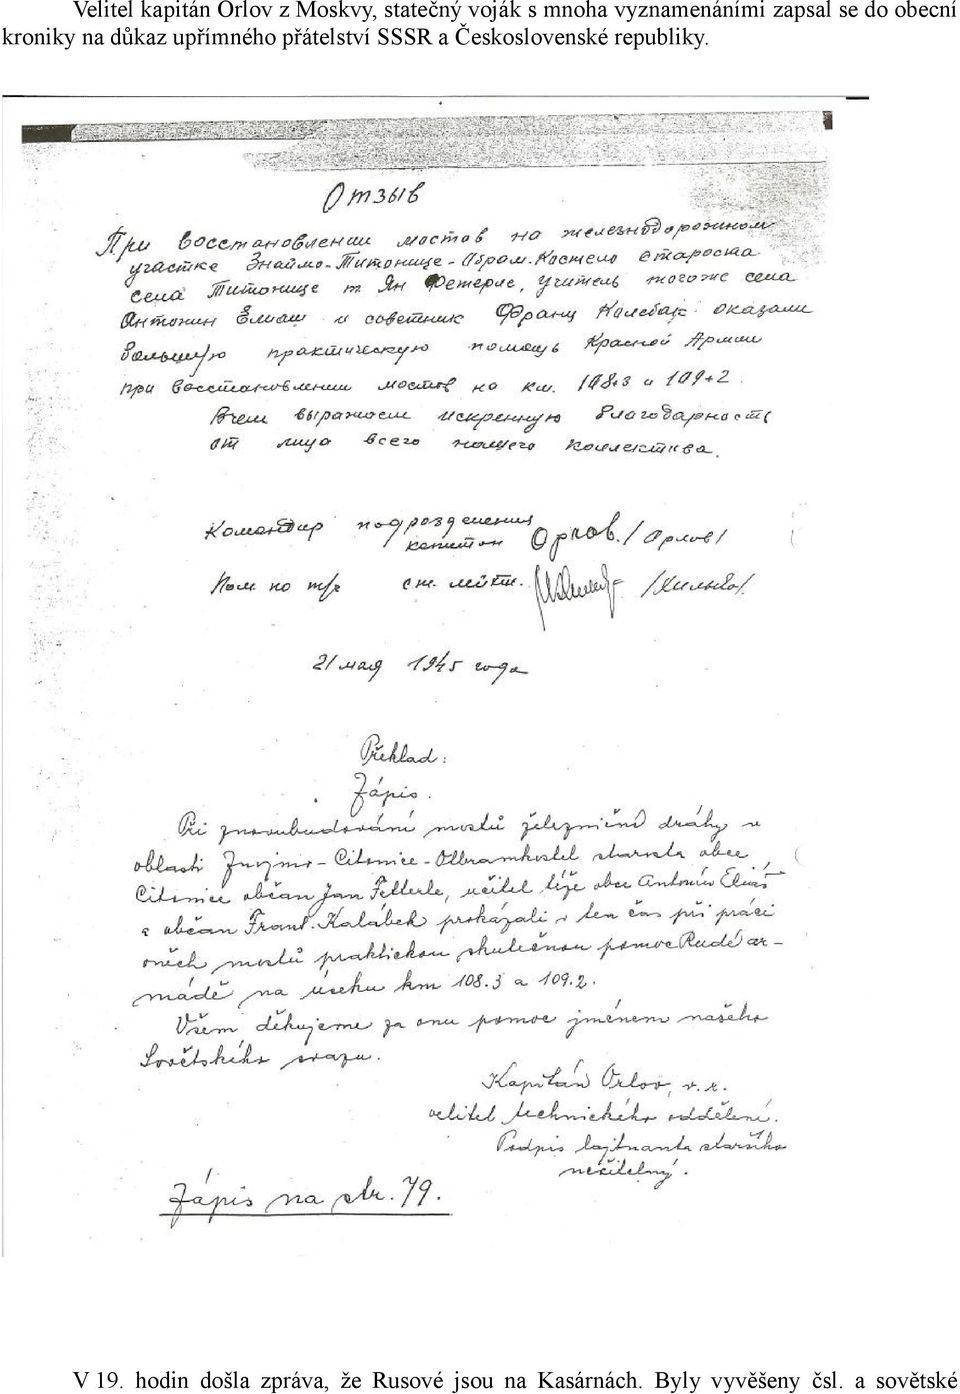 Velitel kapitán Orlov z Moskvy, statečný voják s mnoha vyznamenáními zapsal se do obecní
kroniky na důkaz upřímného přátelství SSSR a Československé republiky.
Отзыв
При восстановлении мостов на железнодорожном
участке Знаймо-Титонице-Абрам.Костело староста
села Титонище т. Ян Фетерле, учитель того же села
Антонин Елиаш и советник Франц Калебак оказали
большую практическую помощь Красной Армии
при восстановлении мостов на км. 108+3 и 109+2.
Всем выражаем искреннюю благодарность
от лица всего нашего коллектива.
Командир подразделения
капитан Орлов. /Орлов/
Пом по т/ч ст. лейт.
21 мая 1945 года
Překlad:
Zápis.
Při znovubudování mostů železniční dráhy v
oblasti Znojmo-Citonice-Olbramkostel starosta obce
Citonice občan Jan Fetterle, učitel téže obce Antonín Eliáš
a občan Frant. Kalábek prokázali v ten čas při práci
oněch mostů praktickou skutečnou pomoc Rudé ar-
mádě na úseku km 108.3 a 109.2.
Všem děkujeme za onu pomoc jménem našeho
Sovětského svazu.
Kapitán Orlov, v. r.
velitel technického oddělení.
Podpis lajtnanta staršího
nečitelný.
Zápis na str. 79.
V 19. hodin došla zpráva, že Rusové jsou na Kasárnách. Byly vyvěšeny čsl. a sovětské